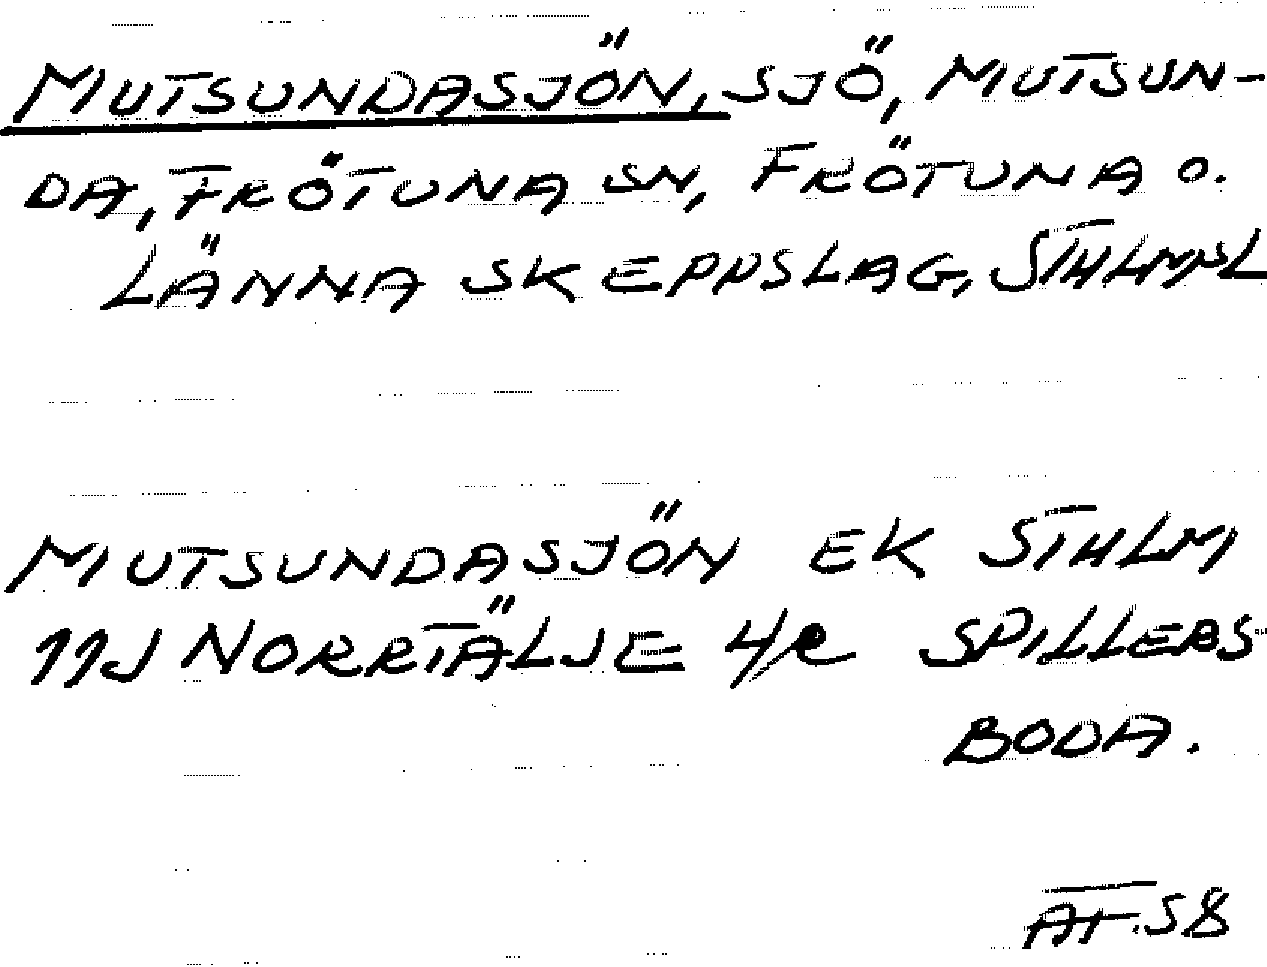 MUTSUNDASJÖN, SJÖ, MUTSUN-
DA, FRÖTUNA SN, FRÖTUNA O.
LÄNNA SKEPPSLAG, STHLMSL
MUTSUNDASJÖN EK STHLM
11J NORRTÄLJE SPILLERS-
BODA.